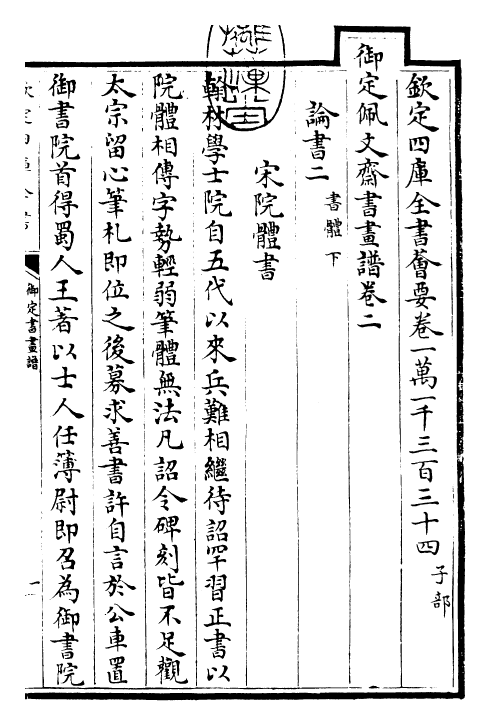 欽定四庫全書薈要卷一萬一千三百三十四 子部
御定佩文齋書畫譜卷二
論書二 書體下
宋院體書
翰林學士院自五代以來兵難相繼待詔罕習正書以
院體相傳字勢輕弱筆體無法凡詔令碑刻皆不足觀
太宗留心筆札即位之後募求善書許自言於公車置
御書院首得蜀人王著以士人任簿尉即召為御書院
御定書畫譜
一